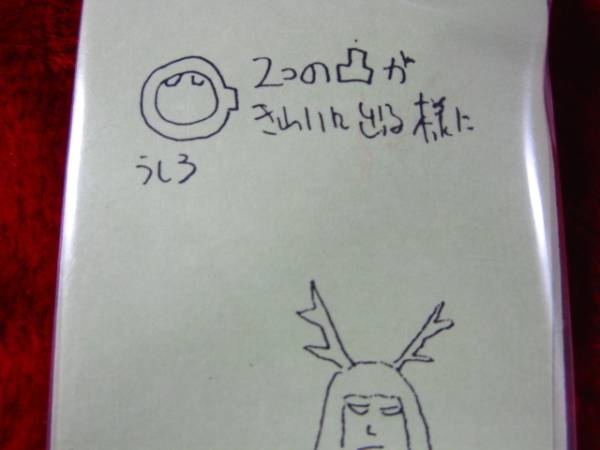 2つの凸が
きれいに出る様に
うしろ